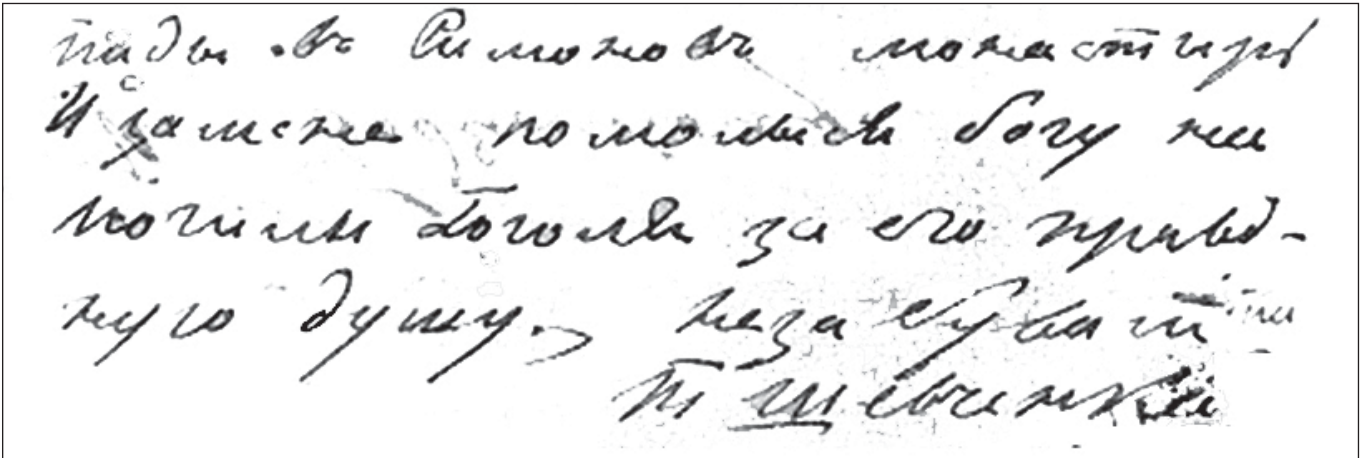 пады въ Симоновъ монастирь
И за мене помолыся богу на
могили Гоголя за его правд-
ную душу. незабувай
Т Шевченка